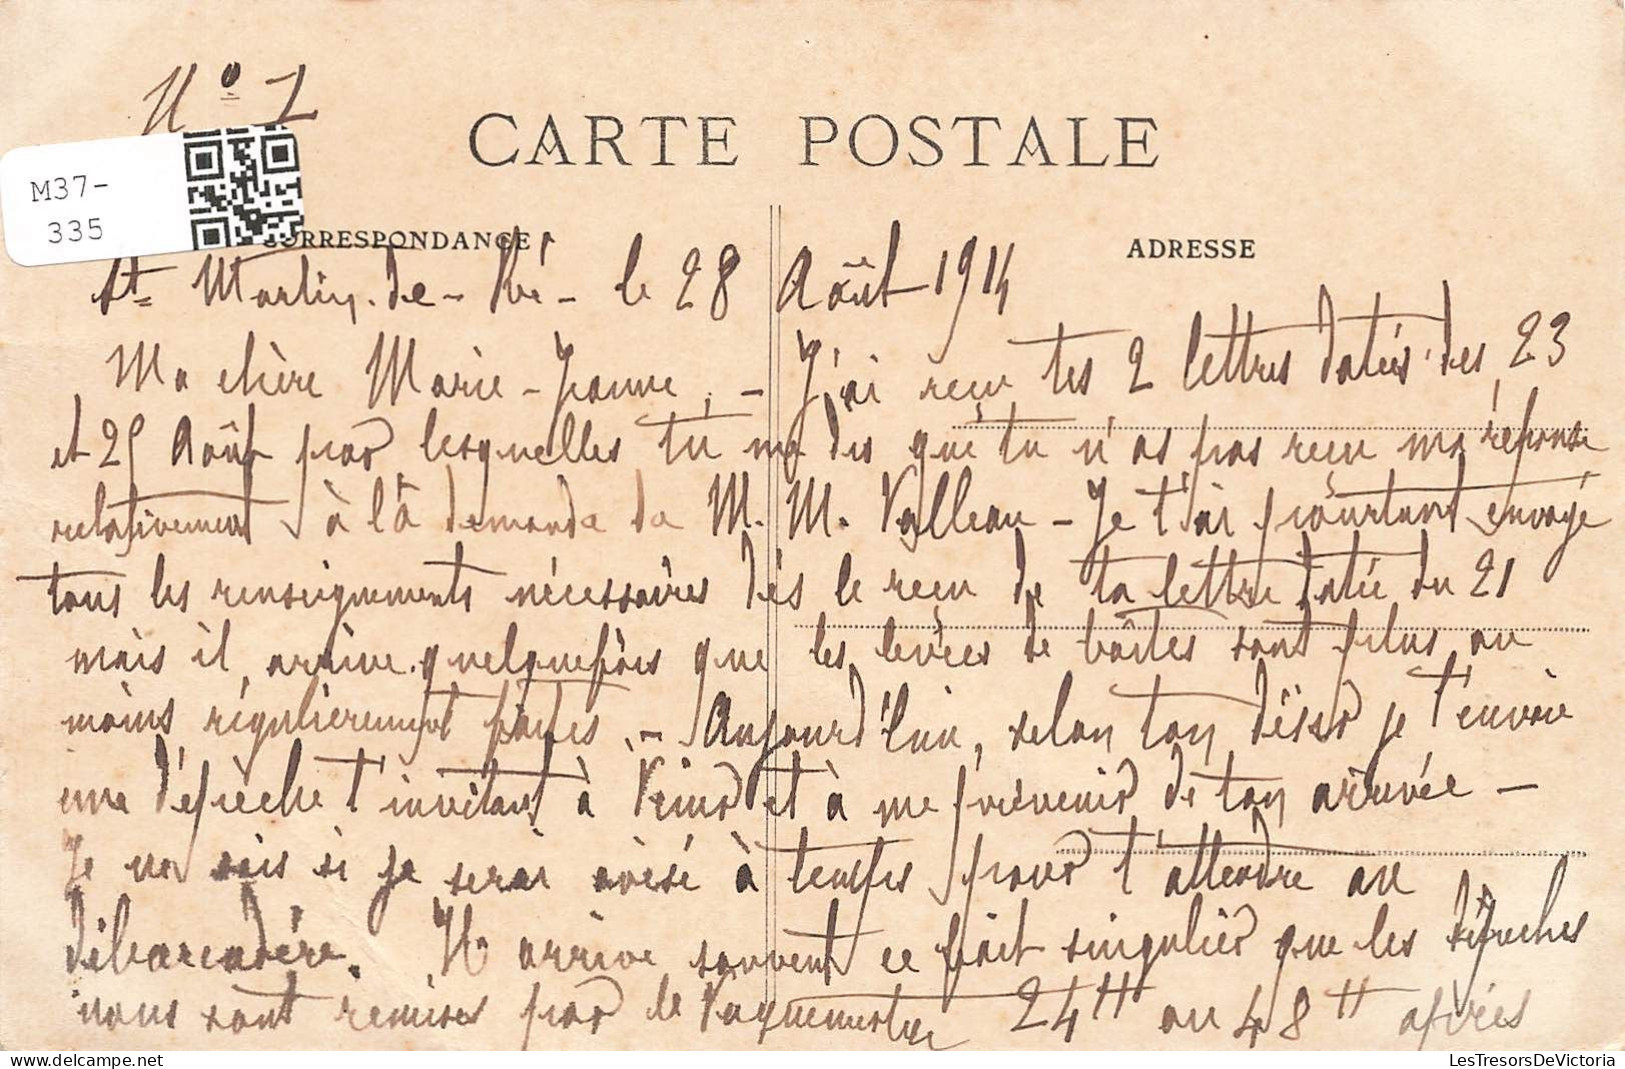 N° 1
CARTE POSTALE
M37-
335
CORRESPONDANCE
ADRESSE
St Martin-de-Ré - le 28 Août 1914
Ma chère Marie-Jeanne, - J'ai reçu tes 2 lettres datées des 23
et 25 Août par lesquelles tu me dis que tu n'as pas reçu ma réponse
relativement à la demande de M. M. Valleau - Je t'ai pourtant envoyé
tous les renseignements nécessaires dès le reçu de ta lettre datée du 21
mais il arrive quelquefois que les levées de boîtes sont plus ou
moins régulièrement faites. - Aujourd'hui, selon ton désir je t'envoie
une dépêche t'invitant à venir et à me prévenir de ton arrivée -
Je ne sais si je serai avisé à temps pour t'attendre au
débarcadère. Il arrive souvent ce fait singulier que les dépêches
nous sont remises par le Vaguemestre 24 H ou 48 H après
LesTresorsDeVictoria